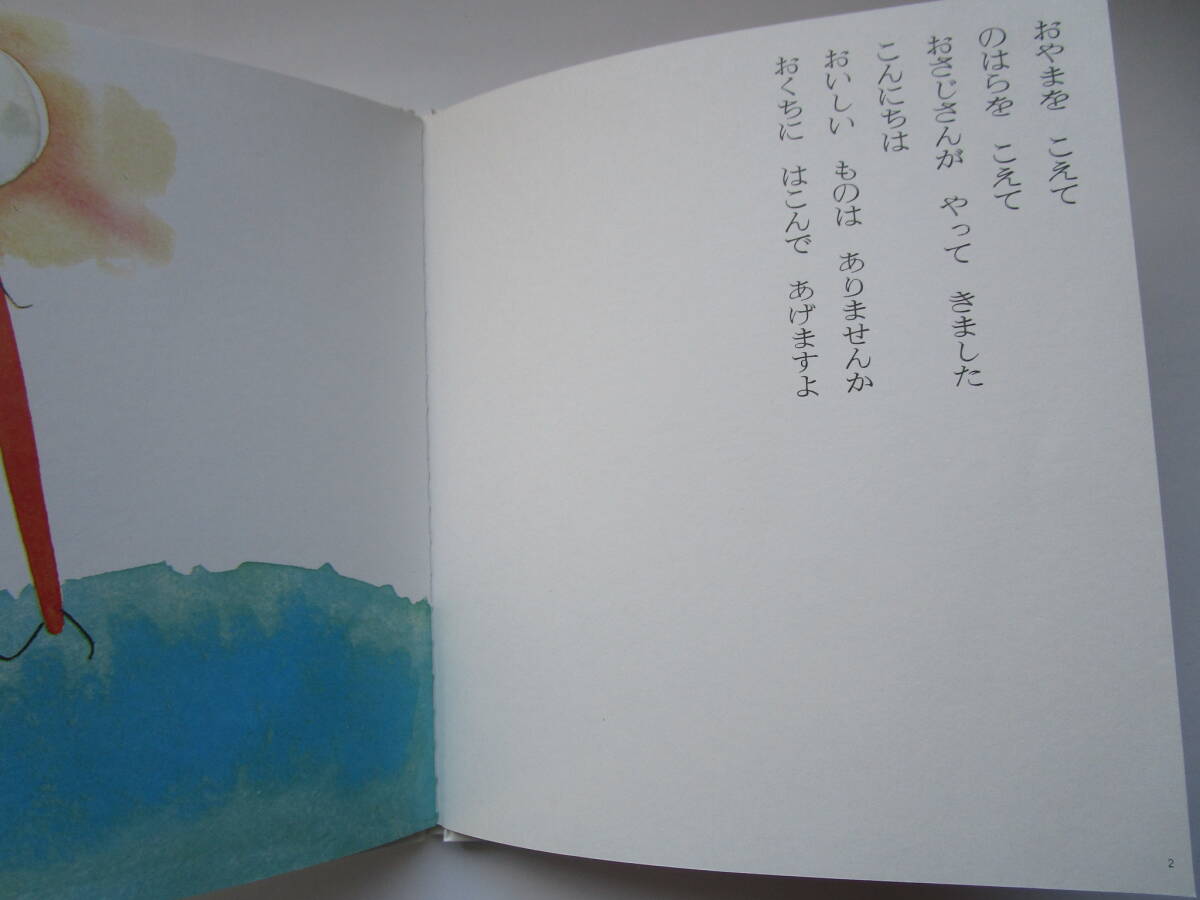 おやまを　こえて
のはらを　こえて
おさじさんが　やって　きました
こんにちは
おいしい　ものは　ありませんか
おくちに　はこんで　あげますよ
2